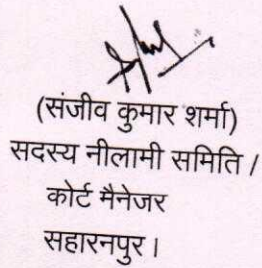 (संजीव कुमार शर्मा)
सदस्य नीलामी समिति /
कोर्ट मैनेजर
सहारनपुर।